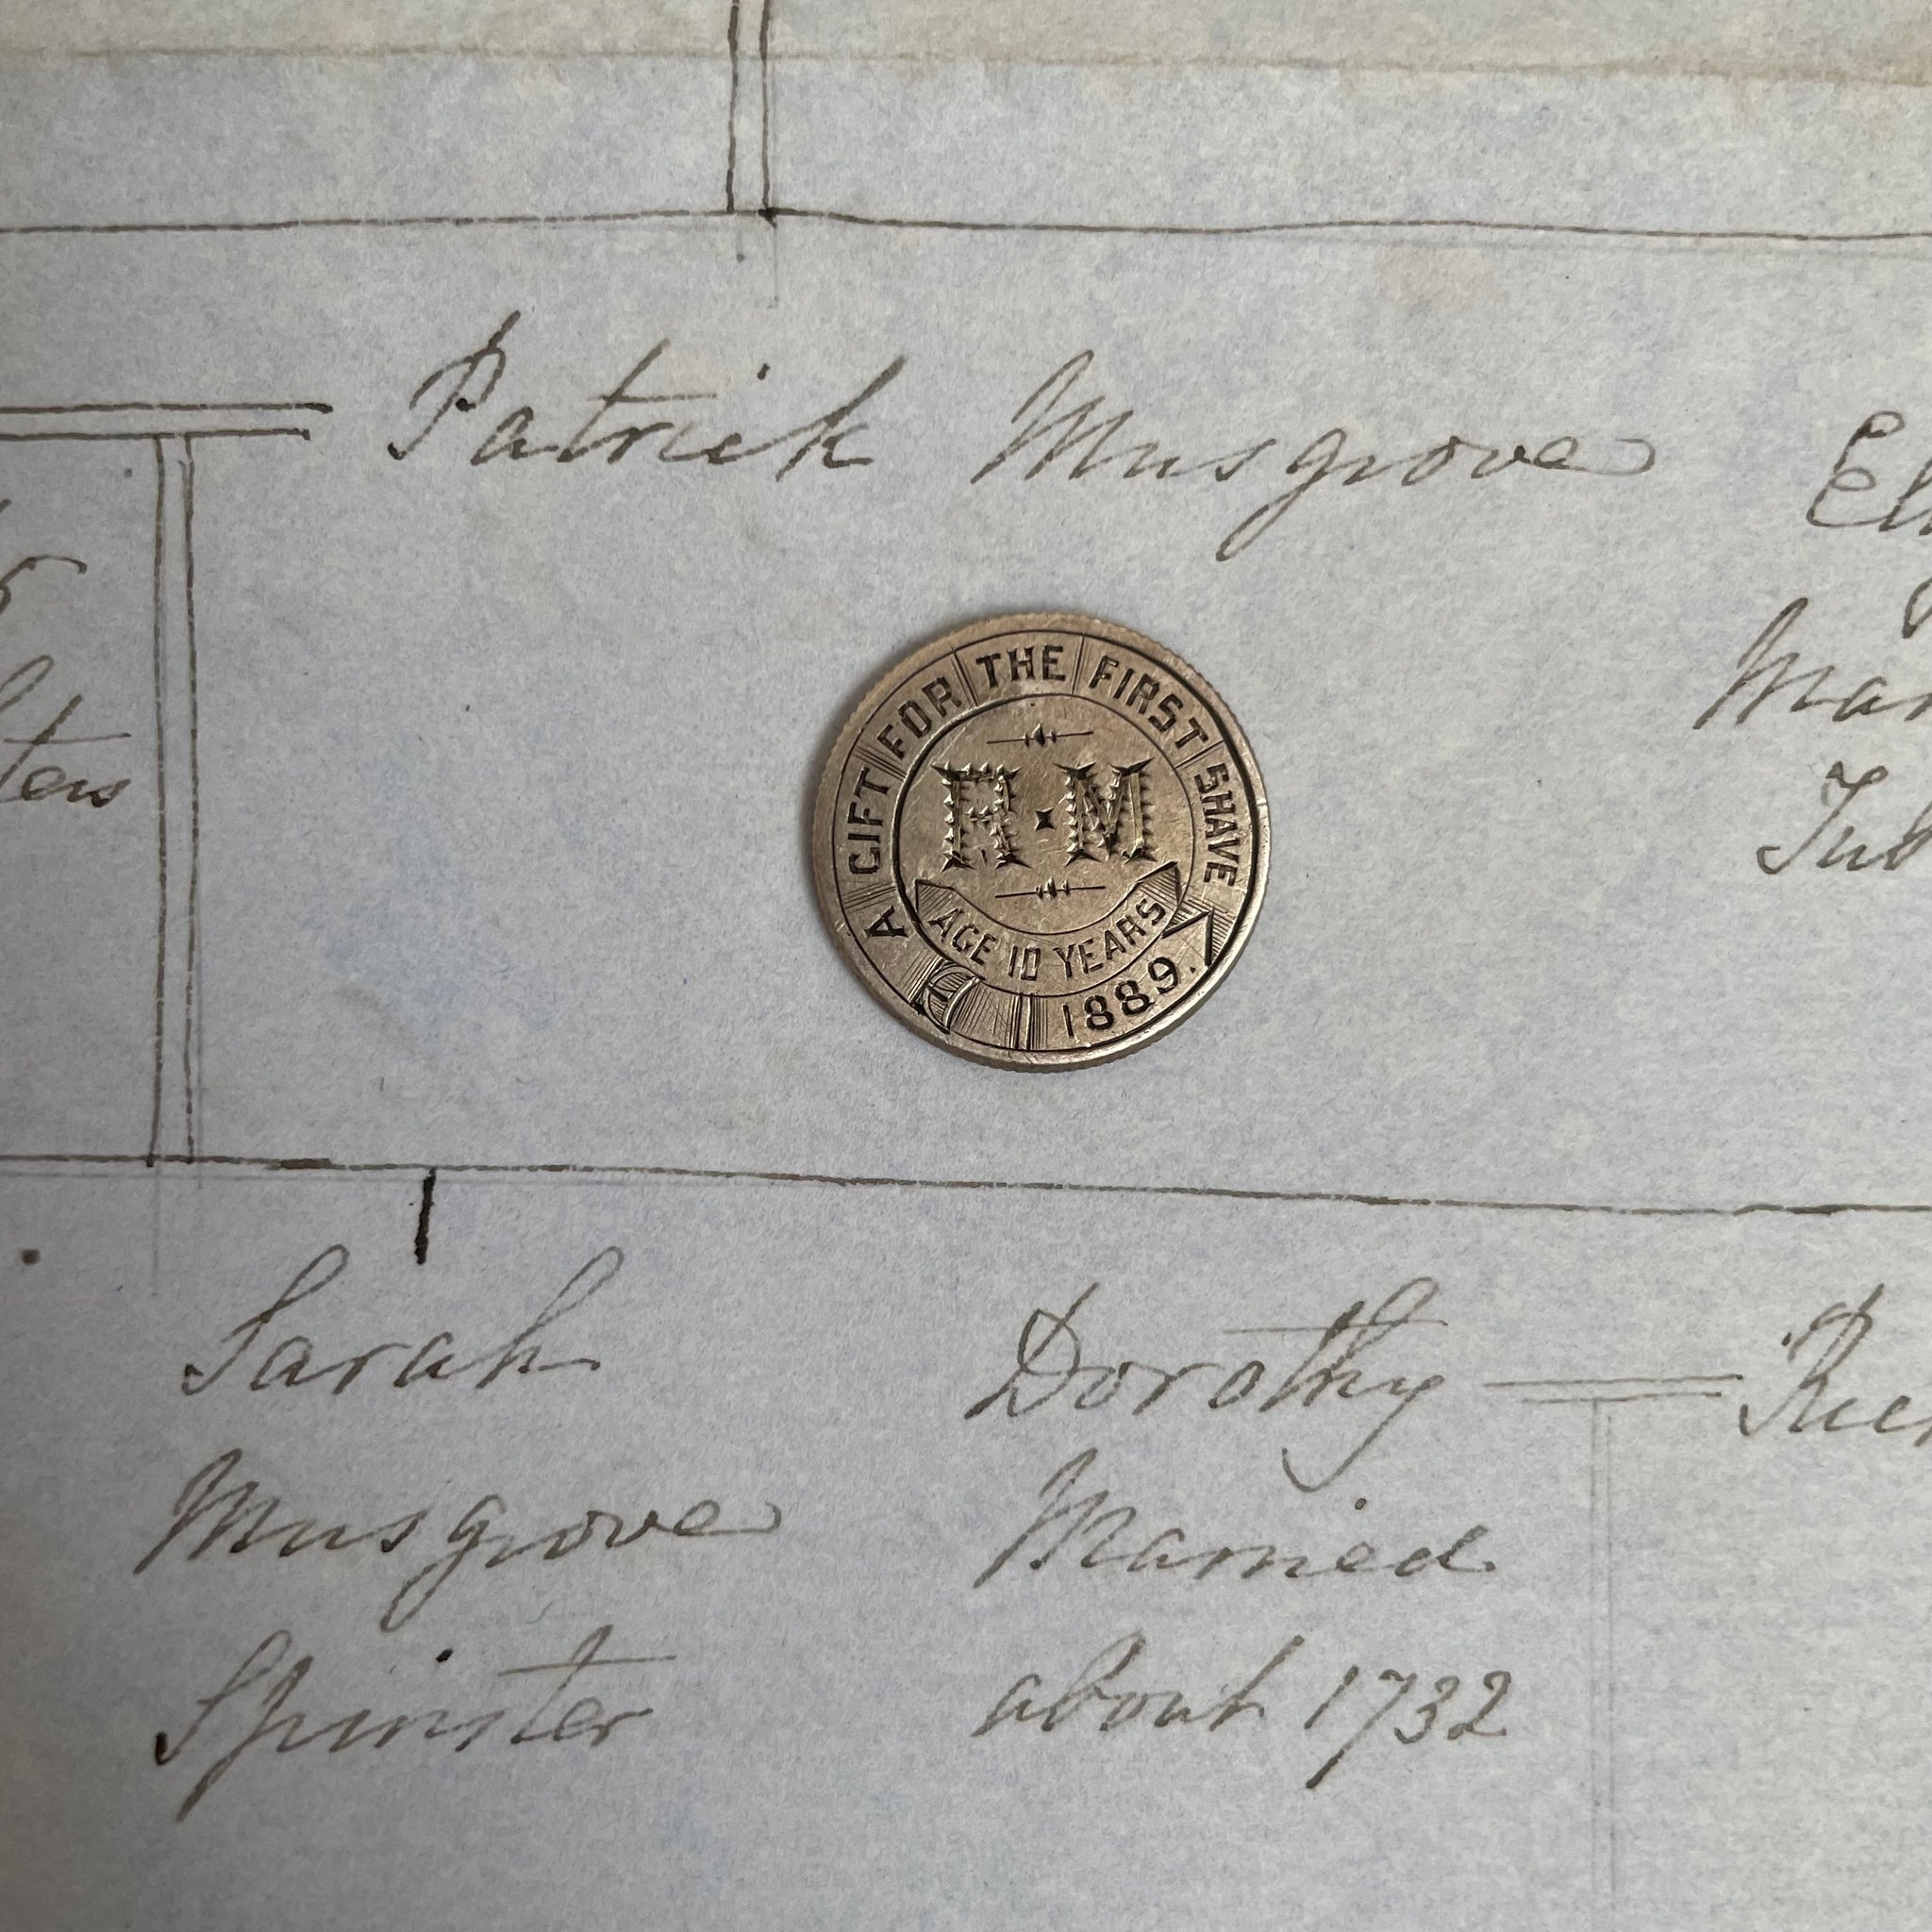 Patrick Musgrove
A GIFT FOR THE FIRST SHAVE
AGE 10 YEARS
1889.
Sarah
Musgrove
Spinster
Dorothy
Married
about 1732